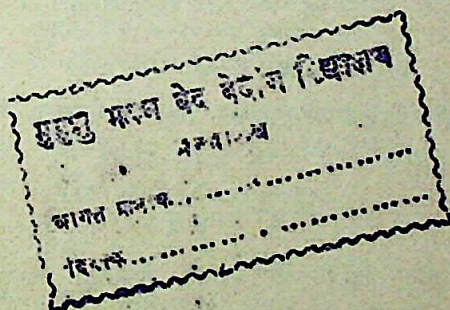 मुमुक्षु भवन वेद वेदांग विद्यालय
ग्रन्थालय
आगत क्रमांक..................................
दिनांक..................................